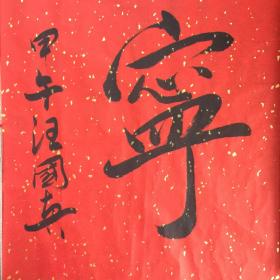 寧
甲午汪國英